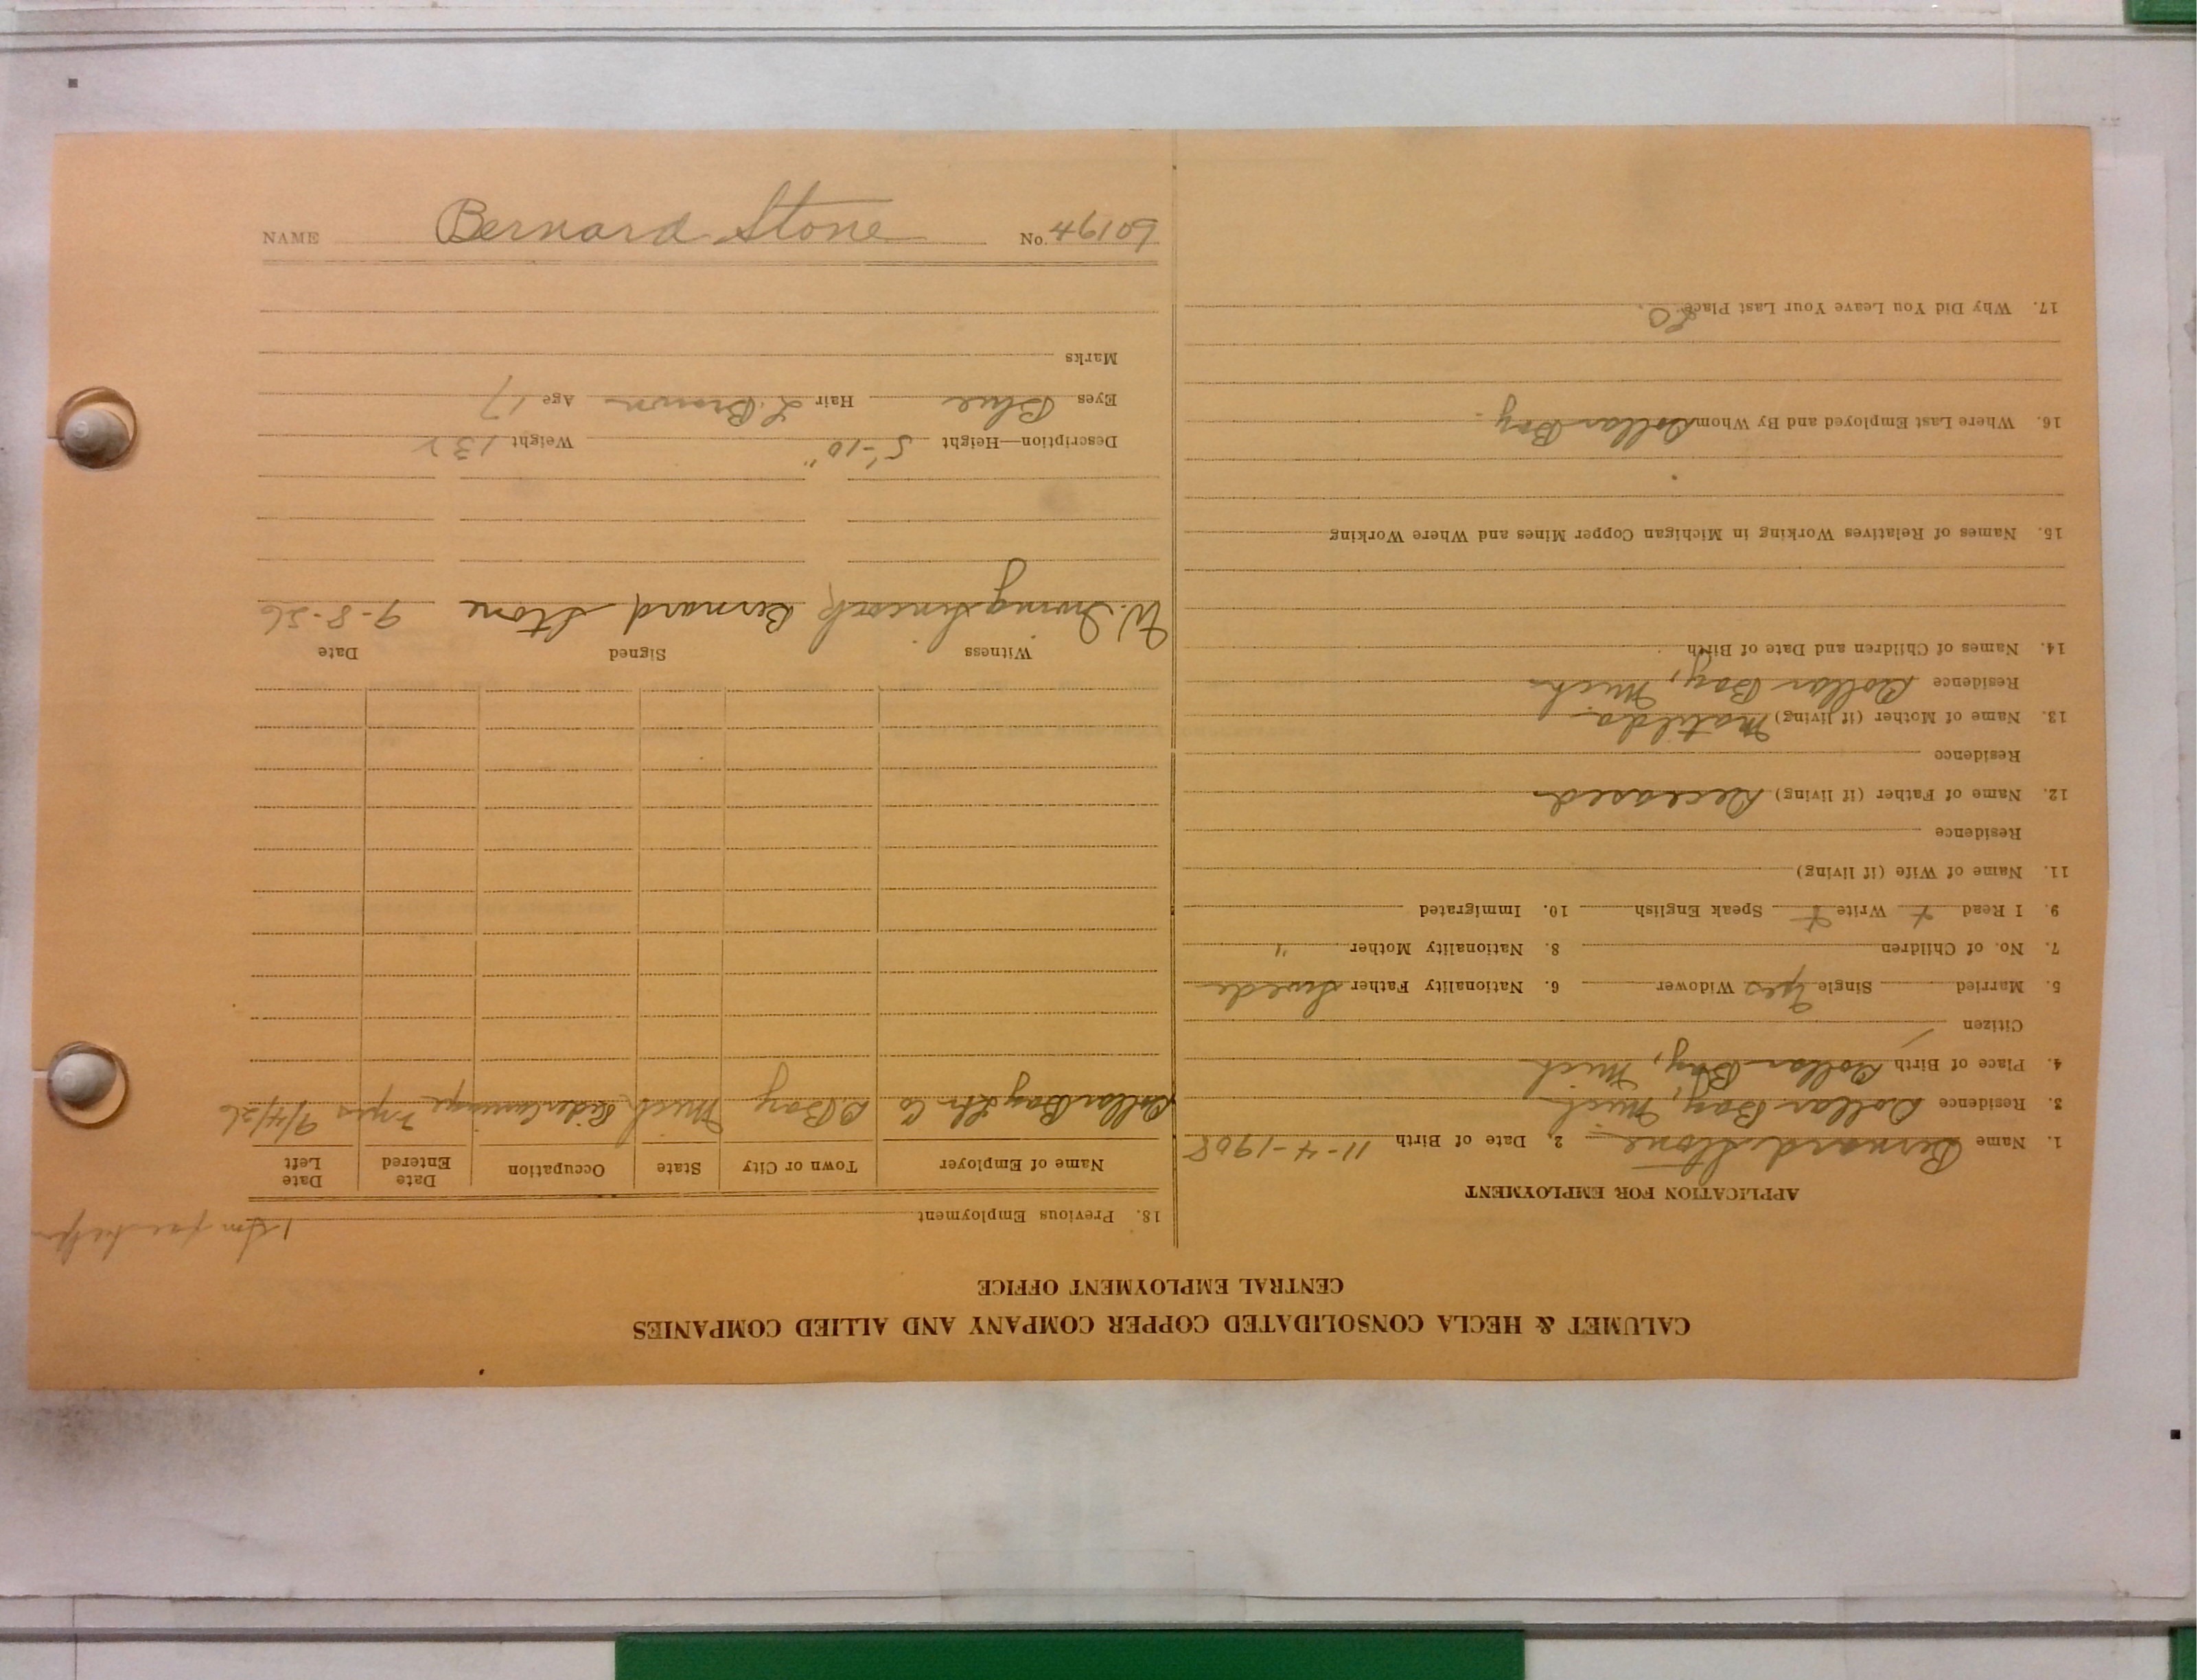 CALUMET & HECLA CONSOLIDATED COPPER COMPANY AND ALLIED COMPANIES
CENTRAL EMPLOYMENT OFFICE
APPLICATION FOR EMPLOYMENT
1. Name Bernard Stone 2. Date of Birth 11-4-1908
3. Residence Dollar Bay, Mich
4. Place of Birth Dollar Bay, Mich
Citizen
5. Married Single Yes Widower 6. Nationality Father Swede
7. No. of Children 8. Nationality Mother "
9. I Read + Write + Speak English 10. Immigrated
11. Name of Wife (if living)
Residence
12. Name of Father (if living) Deceased
Residence
13. Name of Mother (if living) Matilda
Residence Dollar Bay, Mich
14. Names of Children and Date of Birth
15. Names of Relatives Working in Michigan Copper Mines and Where Working
16. Where Last Employed and By Whom Dollar Bay
17. Why Did You Leave Your Last Place
18. Previous Employment
Name of Employer Town or City State Occupation Date Entered Date Left
Dollar Bay Co D. Bay Mich 9/4/26
Witness Signed Date
W. Irving Bernard Stone 9-8-26
Description—Height 5'-10" Weight 132
Eyes Blue Hair L. Brown Age 17
Marks
NAME Bernard Stone No. 46109